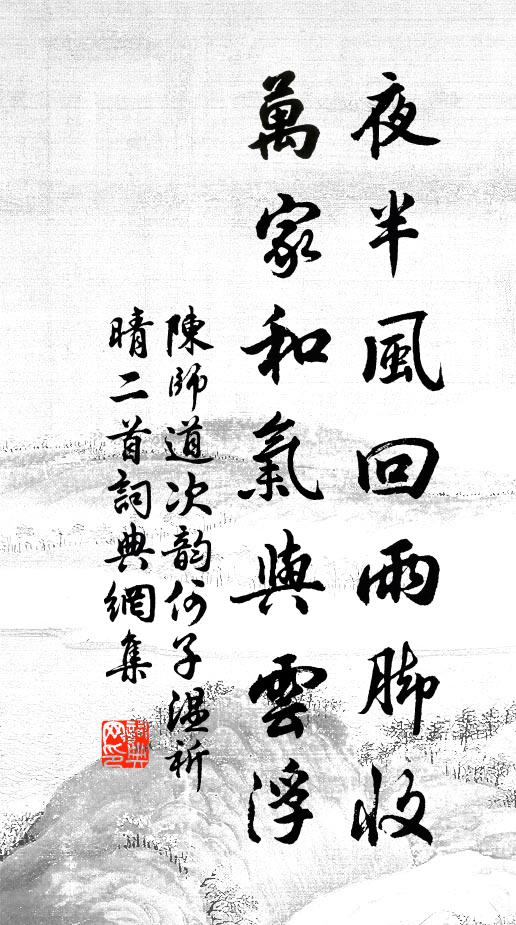 夜半風回雨脚收
萬家和氣與雲浮
陳師道次韵何子溫祈
晴二首詞典網集